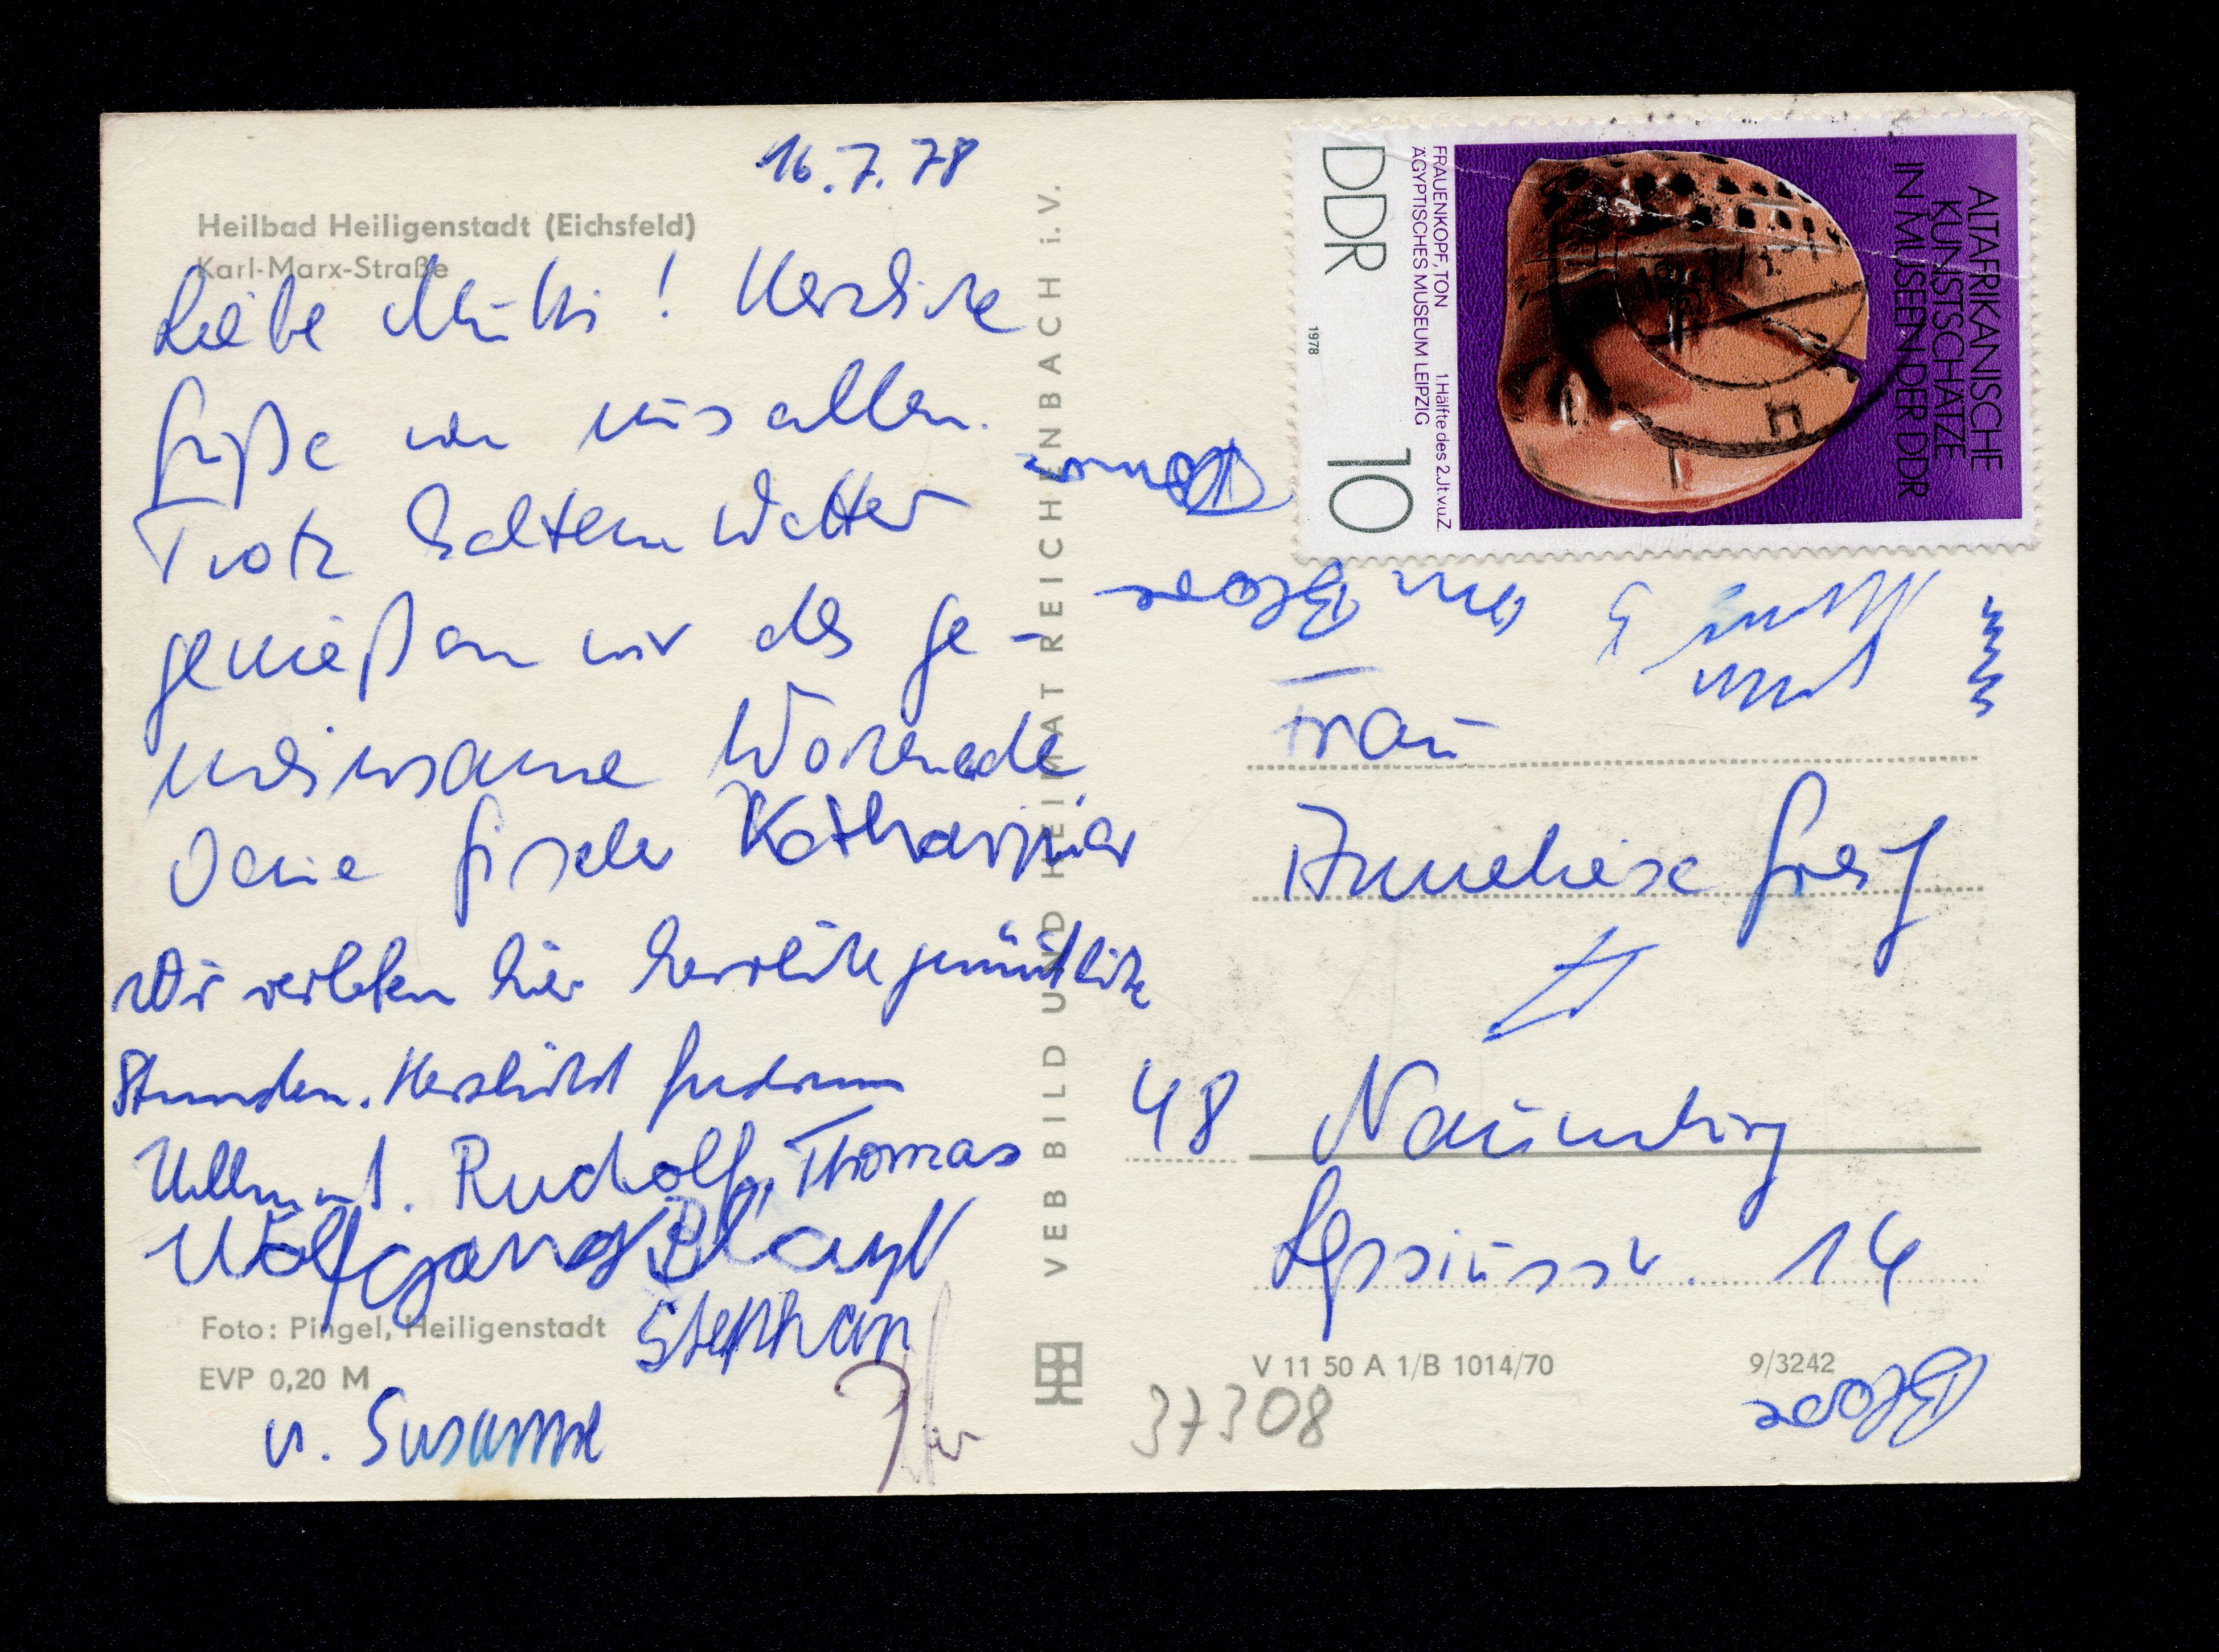 16.7.78
Heilbad Heiligenstadt (Eichsfeld)
Karl-Marx-Straße
Liebe Mutti! Herzliche
Grüße von uns allen.
Trotz kaltem Wetter
genießen wir das ge-
meinsame Wochenende
Deine Gisela Katharina
Wir verleben hier herrliche gemütliche
Stunden. Herzlichst Gudrun
Hellmut. Rudolf, Thomas
Wolfgang
Stephan
Foto: Pingel, Heiligenstadt
EVP 0,20 M
u. Susanne
VEB BILD UND HEIMAT REICHENBACH i.V.
ALTAFRIKANISCHE
KUNSTSCHÄTZE
IN MUSEEN DER DDR
FRAUENKOPF, TON 1.Hälfte des 2.Jt.v.u.Z.
ÄGYPTISCHES MUSEUM LEIPZIG
DDR 10
1978
Frau
Anneliese Greif
48 Naumburg
Lepsiusstr. 14
V 11 50 A 1/B 1014/70 9/3242
37308